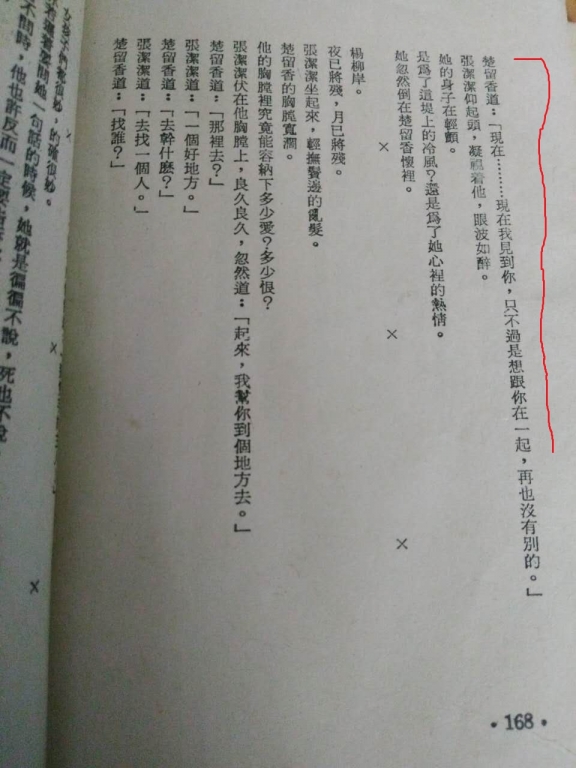 楚留香道：「現在………現在我見到你，只不過是想跟你在一起，再也沒有別的。」
張潔潔仰起頭，凝視着他，眼波如醉。
她的身子在輕顫。
是爲了這堤上的冷風？還是爲了她心裡的熱情。
她忽然倒在楚留香懷裡。
× × ×
楊柳岸。
夜已將殘，月已將殘。
張潔潔坐起來，輕撫鬢邊的亂髮。
楚留香的胸膛寬濶。
他的胸膛裡究竟能容納下多少愛？多少恨？
張潔潔伏在他胸膛上，良久良久，忽然道：「起來，我幫你到個地方去。」
楚留香道：「那裡去？」
張潔潔道：「一個好地方。」
楚留香道：「去幹什麽？」
張潔潔道：「去找一個人。」
楚留香道：「找誰？」
• 168 •
× ×
一句話的時候，她就是偏偏不說，死也不說
不問時，他也許反而一定要